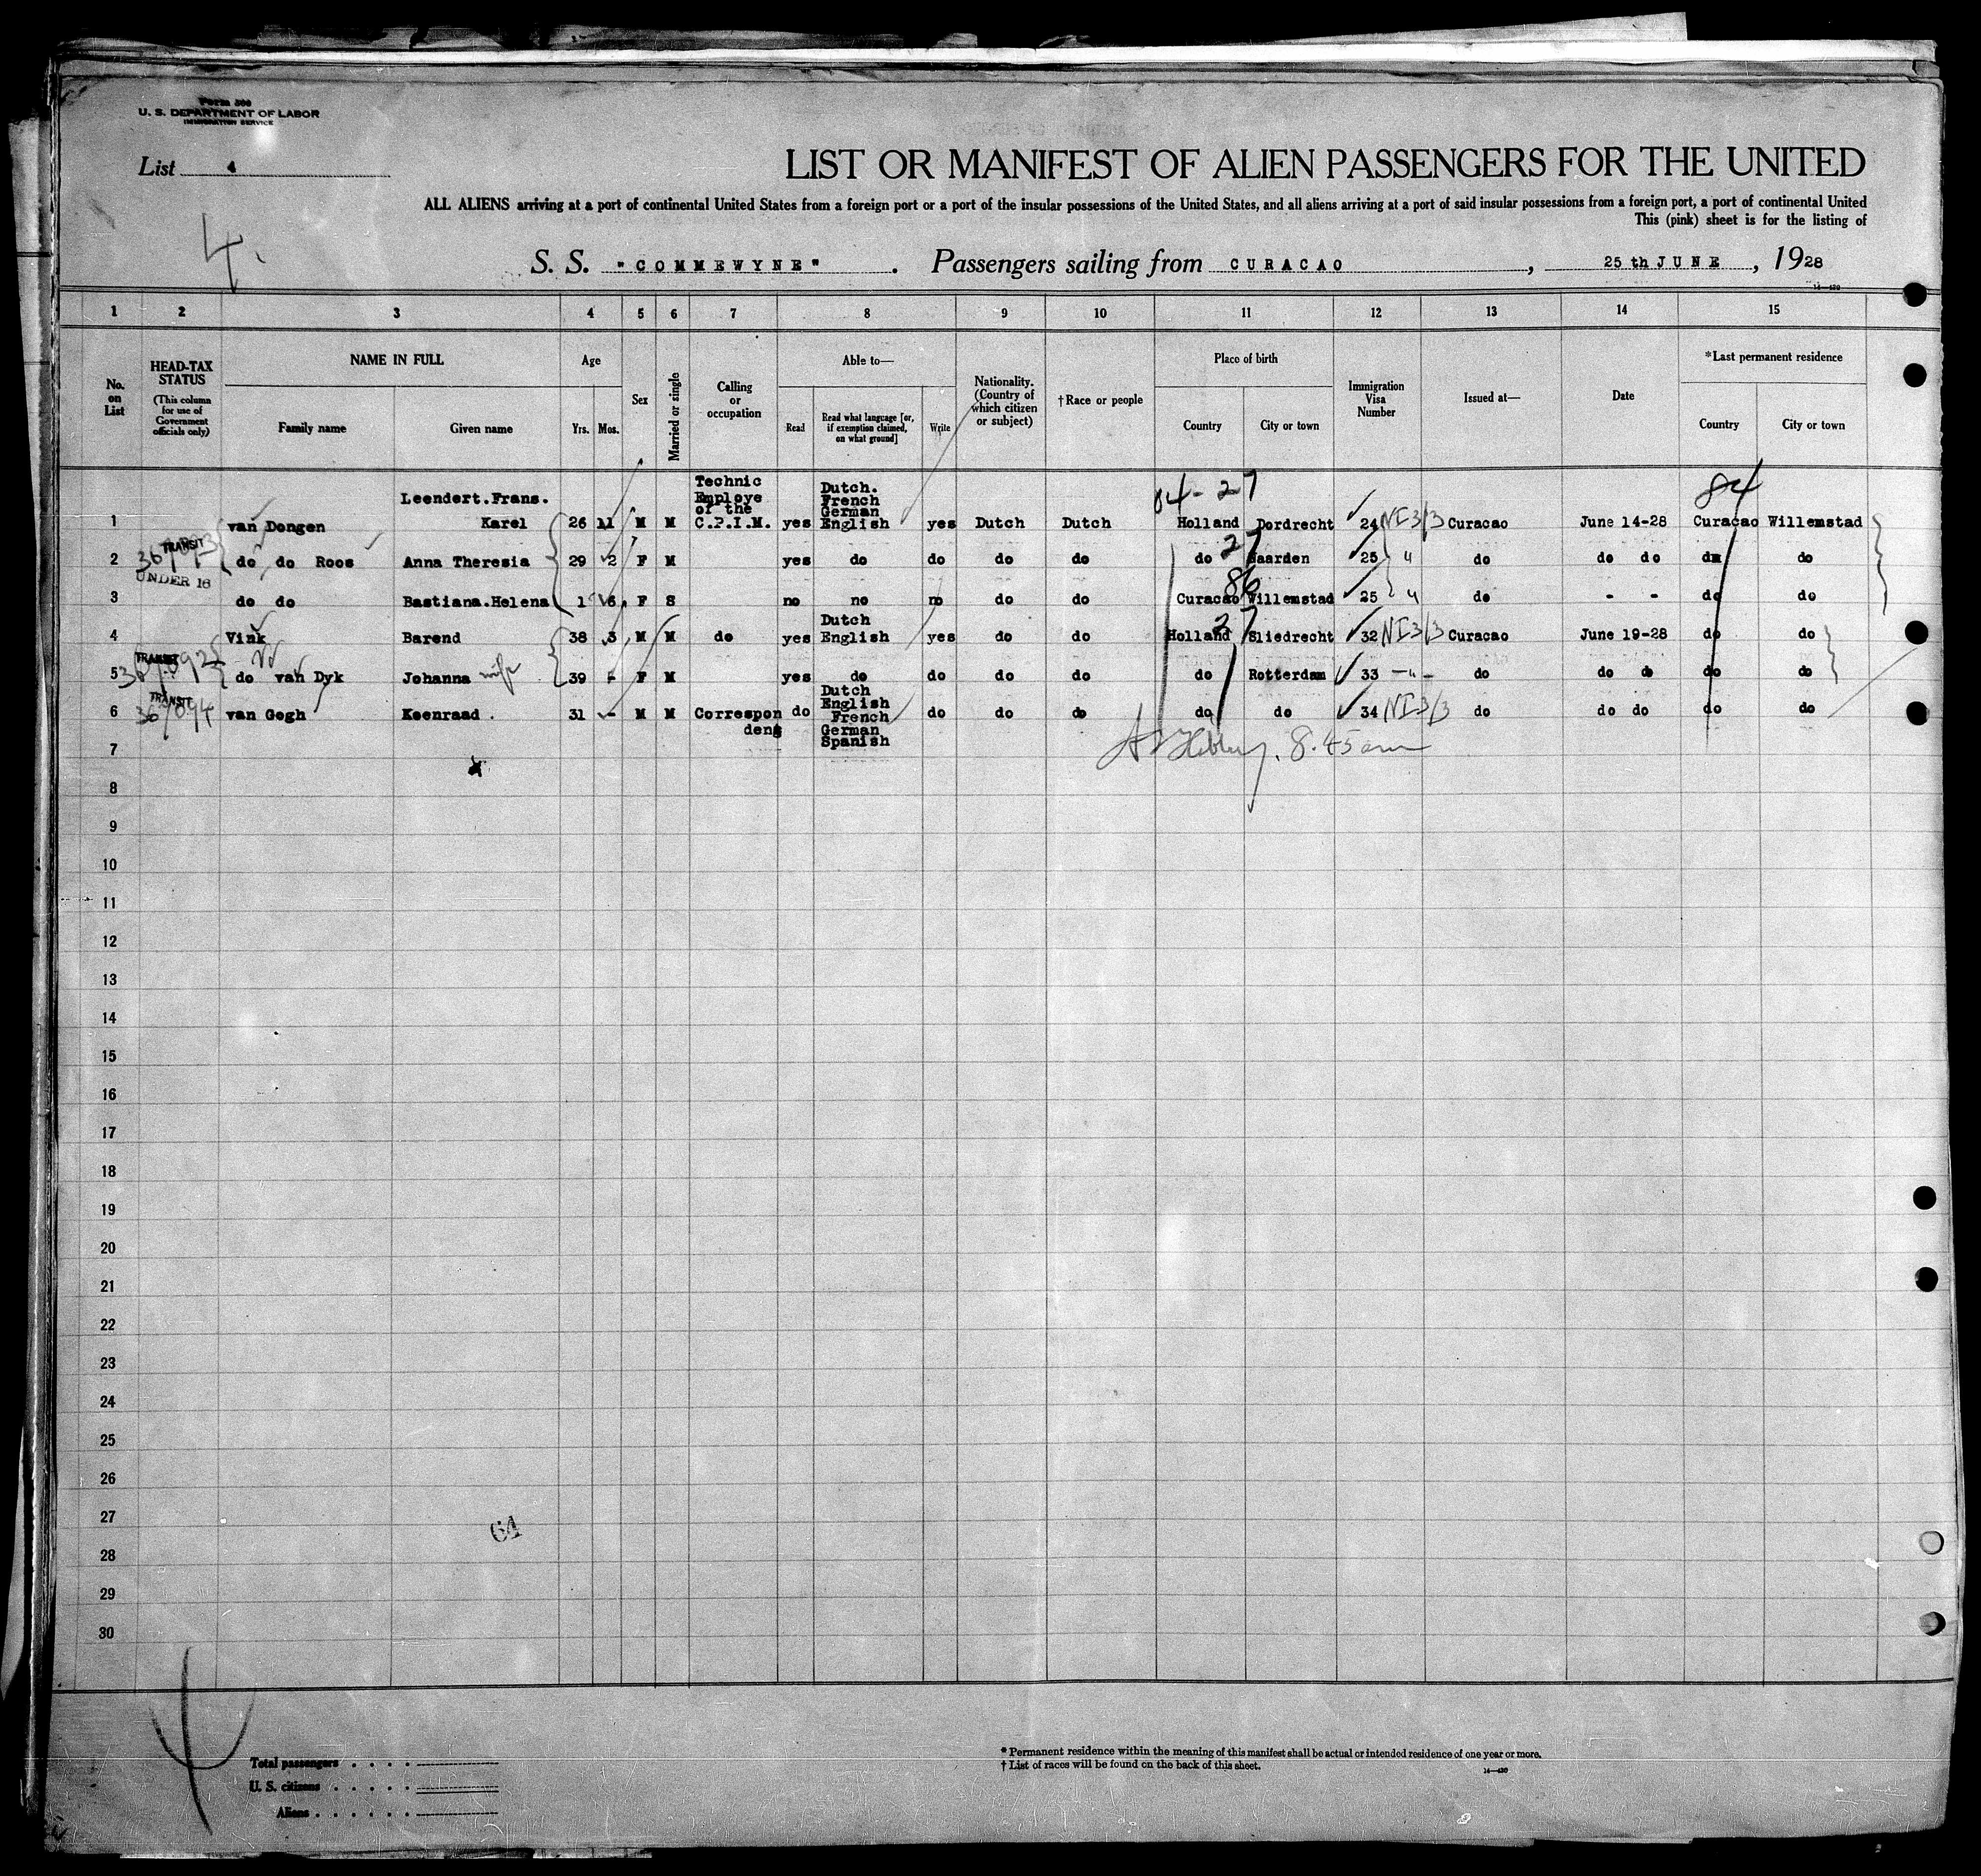 Form 500
U. S. DEPARTMENT OF LABOR
IMMIGRATION SERVICE
List 4
4.
LIST OR MANIFEST OF ALIEN PASSENGERS FOR THE UNITED
ALL ALIENS arriving at a port of continental United States from a foreign port or a port of the insular possessions of the United States, and all aliens arriving at a port of said insular possessions from a foreign port, a port of continental United
This (pink) sheet is for the listing of
S. S. "COMMEWYNE" . Passengers sailing from CURACAO , 25 th JUNE , 1928
1 2 3 4 5 6 7 8 9 10 11 12 13 14 15
No. on List
HEAD-TAX STATUS
(This column for use of Government officials only)
NAME IN FULL
Family name Given name
Age
Yrs. Mos.
Sex
Married or single
Calling or occupation
Able to—
Read
Read what language [or, if exemption claimed, on what ground]
Write
Nationality. (Country of which citizen or subject)
† Race or people
Place of birth
Country City or town
Immigration Visa Number
Issued at—
Date
*Last permanent residence
Country City or town
04-27 84
Leendert.Frans. Technic Employe of the Dutch. French German
1 van Dongen Karel 26 11 M M C.P.I.M. yes English yes Dutch Dutch Holland Dordrecht 24 NI 3/3 Curacao June 14-28 Curacao Willemstad
TRANSIT
2 do do Roos Anna Theresia 29 2 F M yes do do do do do 27 Naarden 25 " do do do do do
UNDER 16
3 do do Bastiana.Helena 1 6 F S no no no do do Curacao 86 Willemstad 25 " do - - do do
Dutch
4 Vink Barend 38 3 M M do yes English yes do do Holland 27 Sliedrecht 32 NI 3/3 Curacao June 19-28 do do
TRANSIT
5 do van Dyk Johanna wife 39 - F M yes do do do do do Rotterdam 33 - " - do do do do do
TRANSIT
36/094
Dutch English
6 van Gogh Koenraad . 31 - M M Correspon do French do do do do do 34 NI 3/3 do do do do do
dent German Spanish
7
8.45 am
8
9
10
11
12
13
14
15
16
17
18
19
20
21
22
23
24
25
26
27
64
28
29
30
Total passengers . . . .
U. S. citizens . . . . .
Aliens . . . . . .
* Permanent residence within the meaning of this manifest shall be actual or intended residence of one year or more.
† List of races will be found on the back of this sheet.
14—430